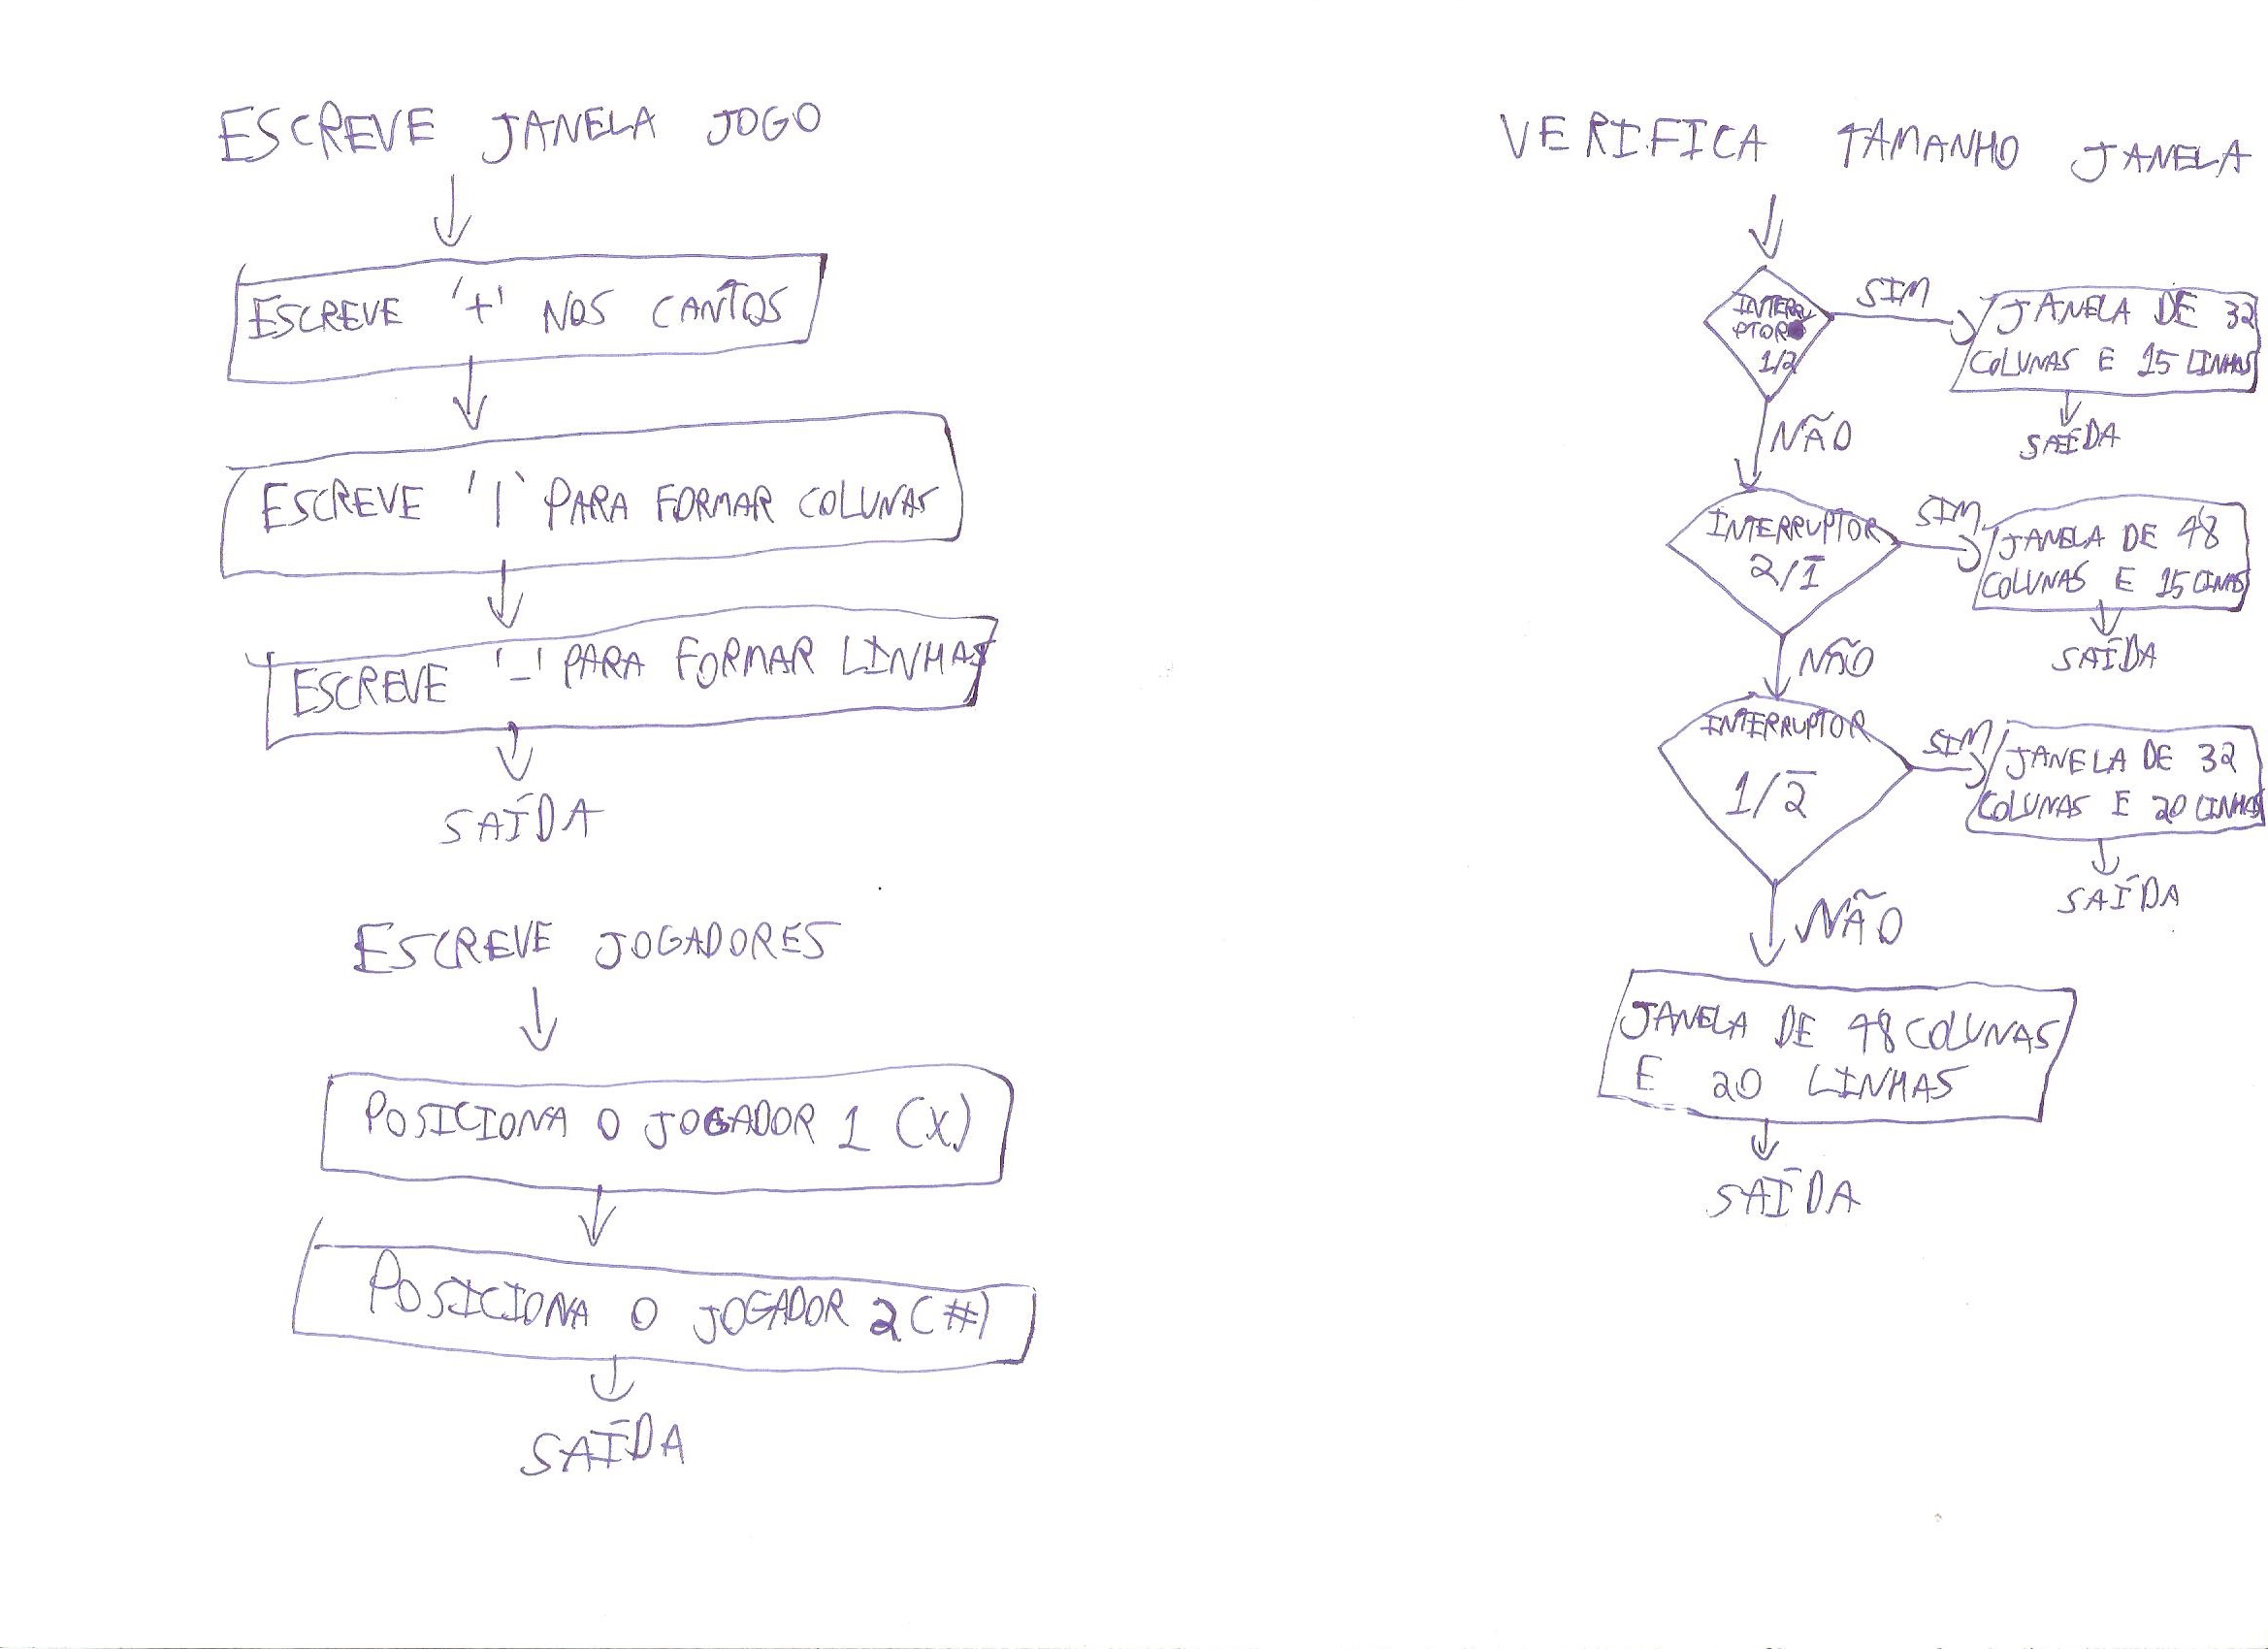 ESCREVE JANELA JOGO
ESCREVE '+' NOS CANTOS
ESCREVE '|' PARA FORMAR COLUNAS
ESCREVE '-' PARA FORMAR LINHAS
SAÍDA
ESCREVE JOGADORES
POSICIONA O JOGADOR 1 (X)
POSICIONA O JOGADOR 2 (#)
SAÍDA
VERIFICA TAMANHO JANELA
INTERRU
PTOR
1/2
SIM
JANELA DE 32
COLUNAS E 15 LINHAS
SAÍDA
NÃO
INTERRUPTOR
2/1̅
SIM
JANELA DE 48
COLUNAS E 15 LINAS
SAÍDA
NÃO
INTERRUPTOR
1/2̅
SIM
JANELA DE 32
COLUNAS E 20 LINHAS
SAÍDA
NÃO
JANELA DE 48 COLUNAS
E 20 LINHAS
SAÍDA